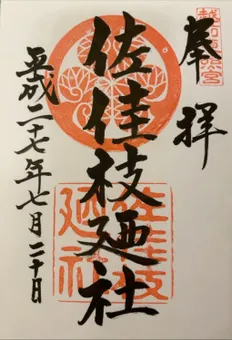 奉拝
越前東照宮
佐佳枝廼社
佐佳枝廼社
平成二十七年七月二十日